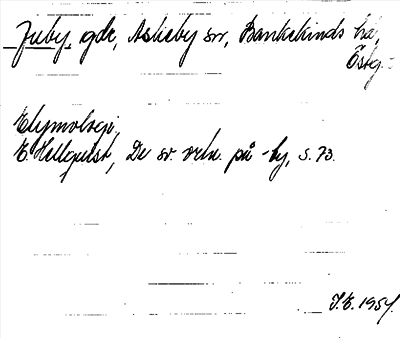 Juby, gdr, Askeby sn, Bankekinds hd,
Östg.
Etymologi,
E. Hellquist, De sv. ortn. på -by, s. 73.
J.E. 1954.